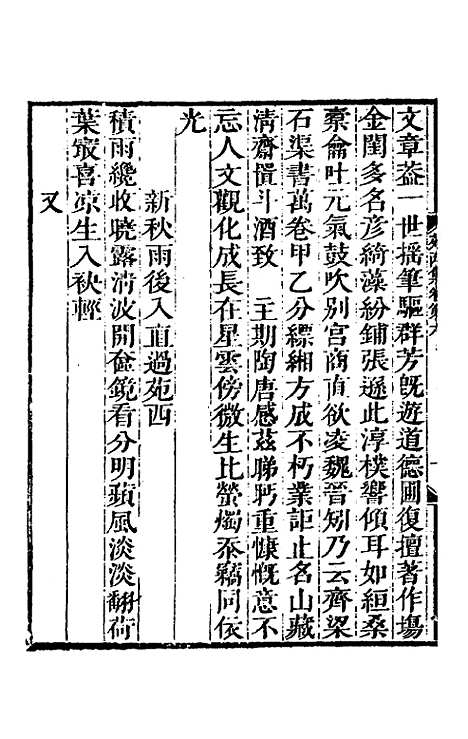 文章葢一世搖筆驅群芳旣遊道德圃復擅著作塲
金閨多名彥綺藻紛鋪張遜此淳樸響傾耳如絙桑
橐龠吐元氣鼓吹別宮商直欲凌魏晉矧乃云齊梁
石渠書萬卷甲乙分縹緗方成不朽業詎止名山藏
淸齋慣斗酒致 主期陶唐感茲睇眄重慷慨意不
忘人文觀化成長在星雲傍微生比螢燭忝竊同依
光
新秋雨後入直過苑西
積雨纔收曉露淸波開奩鏡看分明蘋風淡淡翻荷
葉㝡喜凉生入袂輕
又